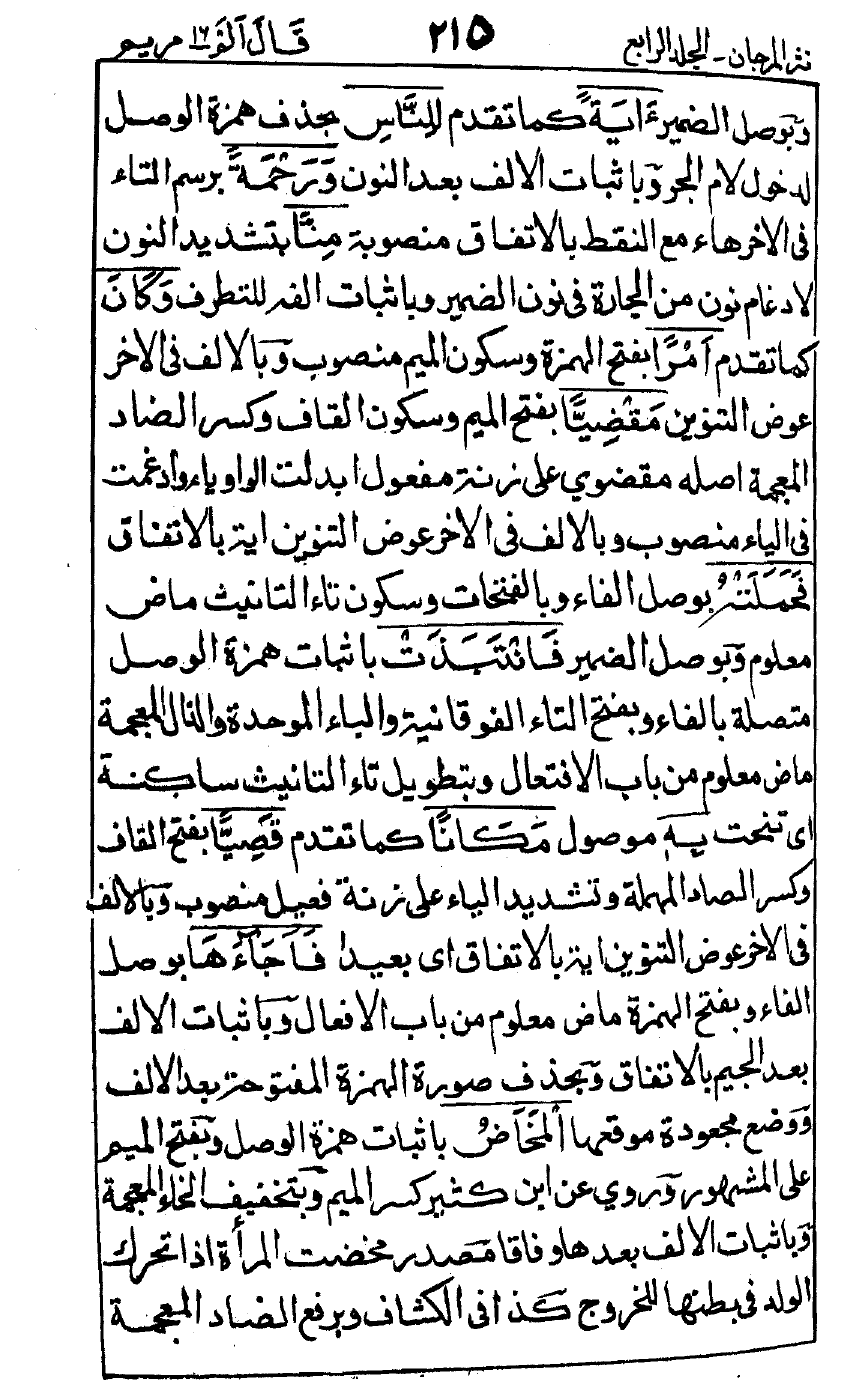 نثر المرجان - المجلد الرابع ٢١٥ قَالَ اَلَوْ ١٦ مريم
وبوصل الضمير ءَايَةً كما تقدم لِلنَّاسِ بحذف همزة الوصل
لدخول لام الجر وباثبات الالف بعد النون وَرَحْمَةً برسم التاء
فى الاخر هاء مع النقط بالاتفاق منصوبة مِنَّا بتشديد النون
لادغام نون من الجارة فى نون الضمير وباثبات الفه للتطرف وَكَانَ
كما تقدم اَمْرًا بفتح الهمزة وسكون الميم منصوب وبالالف فى الاخر
عوض التنوين مَقْضِيًّا بفتح الميم وسكون القاف وكسر الضاد
المعجمة اصله مقضوي على زنة مفعول ابدلت الواو ياء وادغمت
فى الياء منصوب وبالالف فى الاخر عوض التنوين اية بالاتفاق
فَحَمَلَتْهُ بوصل الفاء وبالفتحات وسكون تاء التانيث ماض
معلوم وبوصل الضمير فَانْتَبَذَتْ باثبات همزة الوصل
متصلة بالفاء وبفتح التاء الفوقانية والباء الموحدة والذال المعجمة
ماض معلوم من باب الافتعال وبتطويل تاء التانيث ساكنة
اى تنحت بِهٖ موصول مَكَانًا كما تقدم قَصِيًّا بفتح القاف
وكسر الصاد المهملة وتشديد الياء على زنة فعيل منصوب وبالالف
فى الاخر عوض التنوين اية بالاتفاق اى بعيدا فَاَجَآءَهَا بوصل
الفاء وبفتح الهمزة ماض معلوم من باب الافعال وباثبات الالف
بعد الجيم بالاتفاق وبحذف صورة الهمزة المفتوحة بعد الالف
ووضع مجعودة موقعها الْمَخَاضُ باثبات همزة الوصل وبفتح الميم
على المشهور وروي عن ابن كثير كسر الميم وبتخفيف الخاء المعجمة
وباثبات الالف بعدها وفاقا مصدر مخضت المرأة اذا تحرك
الولد فى بطنها للخروج كذا فى الكشاف وبرفع الضاد المعجمة